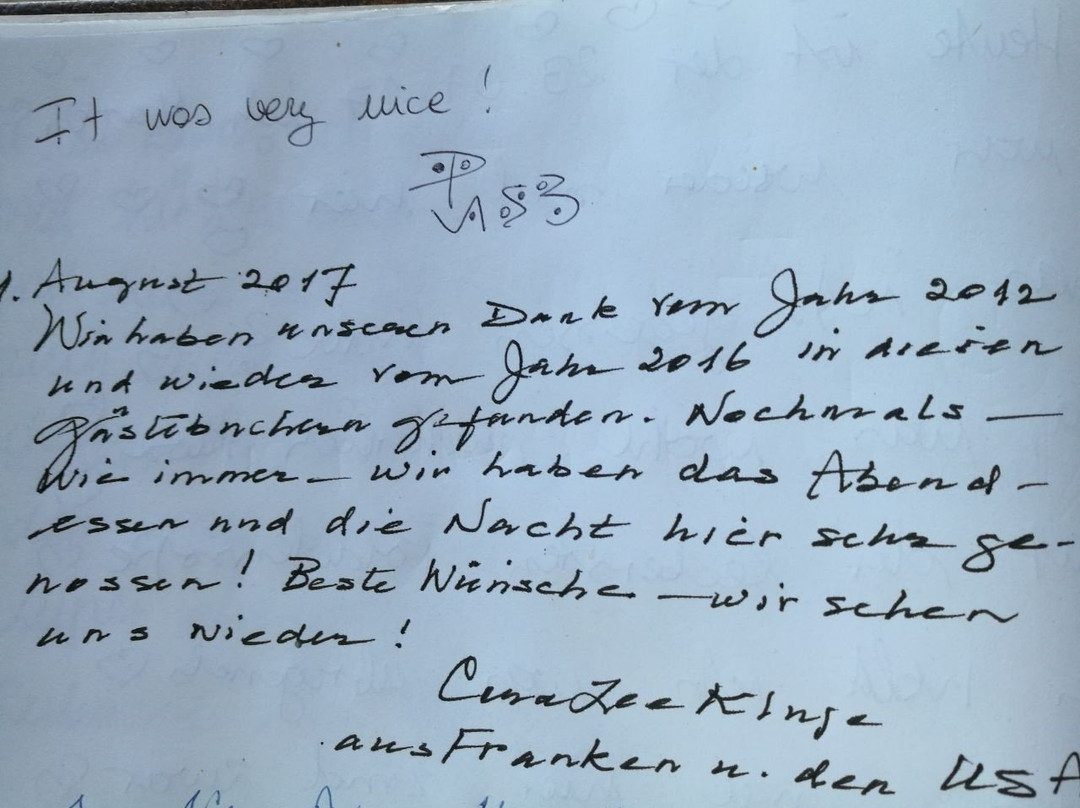 It was very nice!
1. August 2017
Wir haben unseren Dank vom Jahr 2012
und wieder vom Jahr 2016 in diesen
Gästebüchern gefunden. Nochmals —
Wie immer — wir haben das Abend-
essen und die Nacht hier sehr ge-
nossen! Beste Wünsche — wir sehen
uns wieder!
aus Franken u. den USA